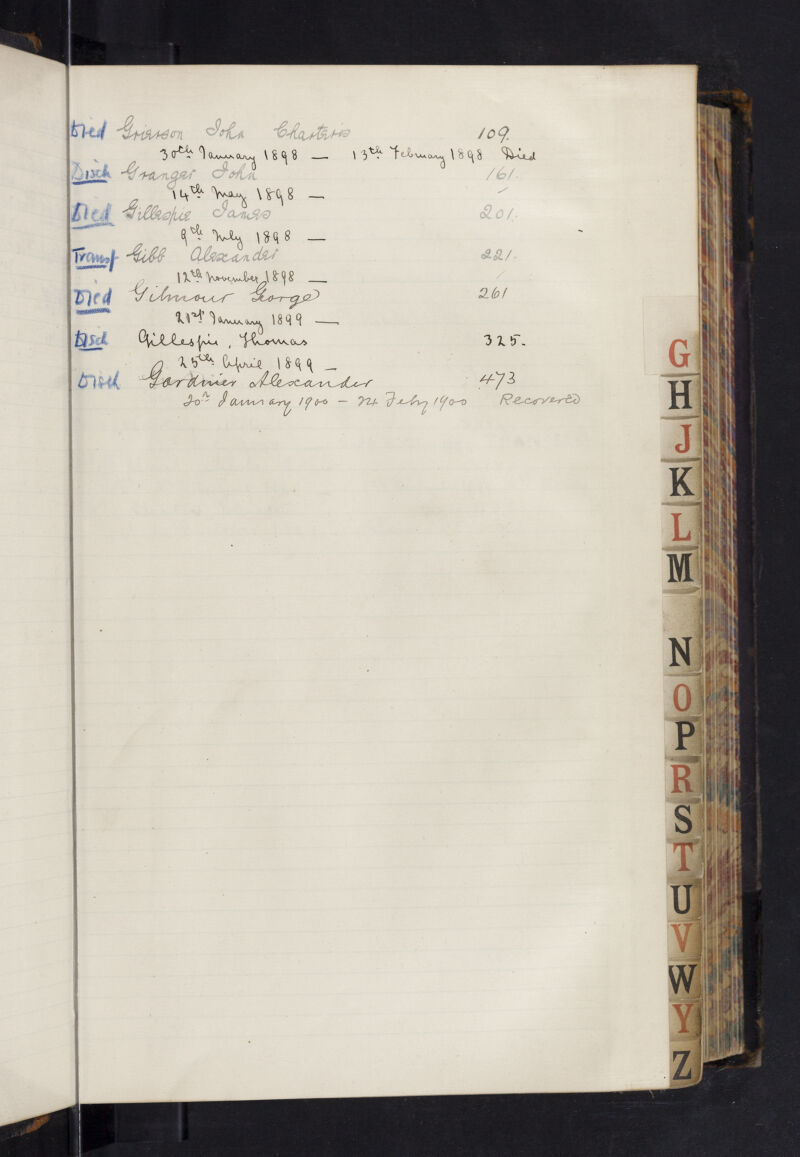 Died Grierson John Charteris 109.
30th January 1898 — 13th February 1898 Died
Disch Granger John 161.
14th May 1898 —
Died Gillespie James 201.
9th July 1898 —
Transf Gibb Alexander 221.
12th November 1898 —
Died Gilmour George 261
21st January 1899 —
Disch Gillespie, Thomas 325.
25th April 1899 —
Disch Gardiner Alexander 473
20th January 1900 — 24 Feby 1900 Recovered
G
H
J
K
L
M
N
O
P
R
S
T
U
V
W
Y
Z